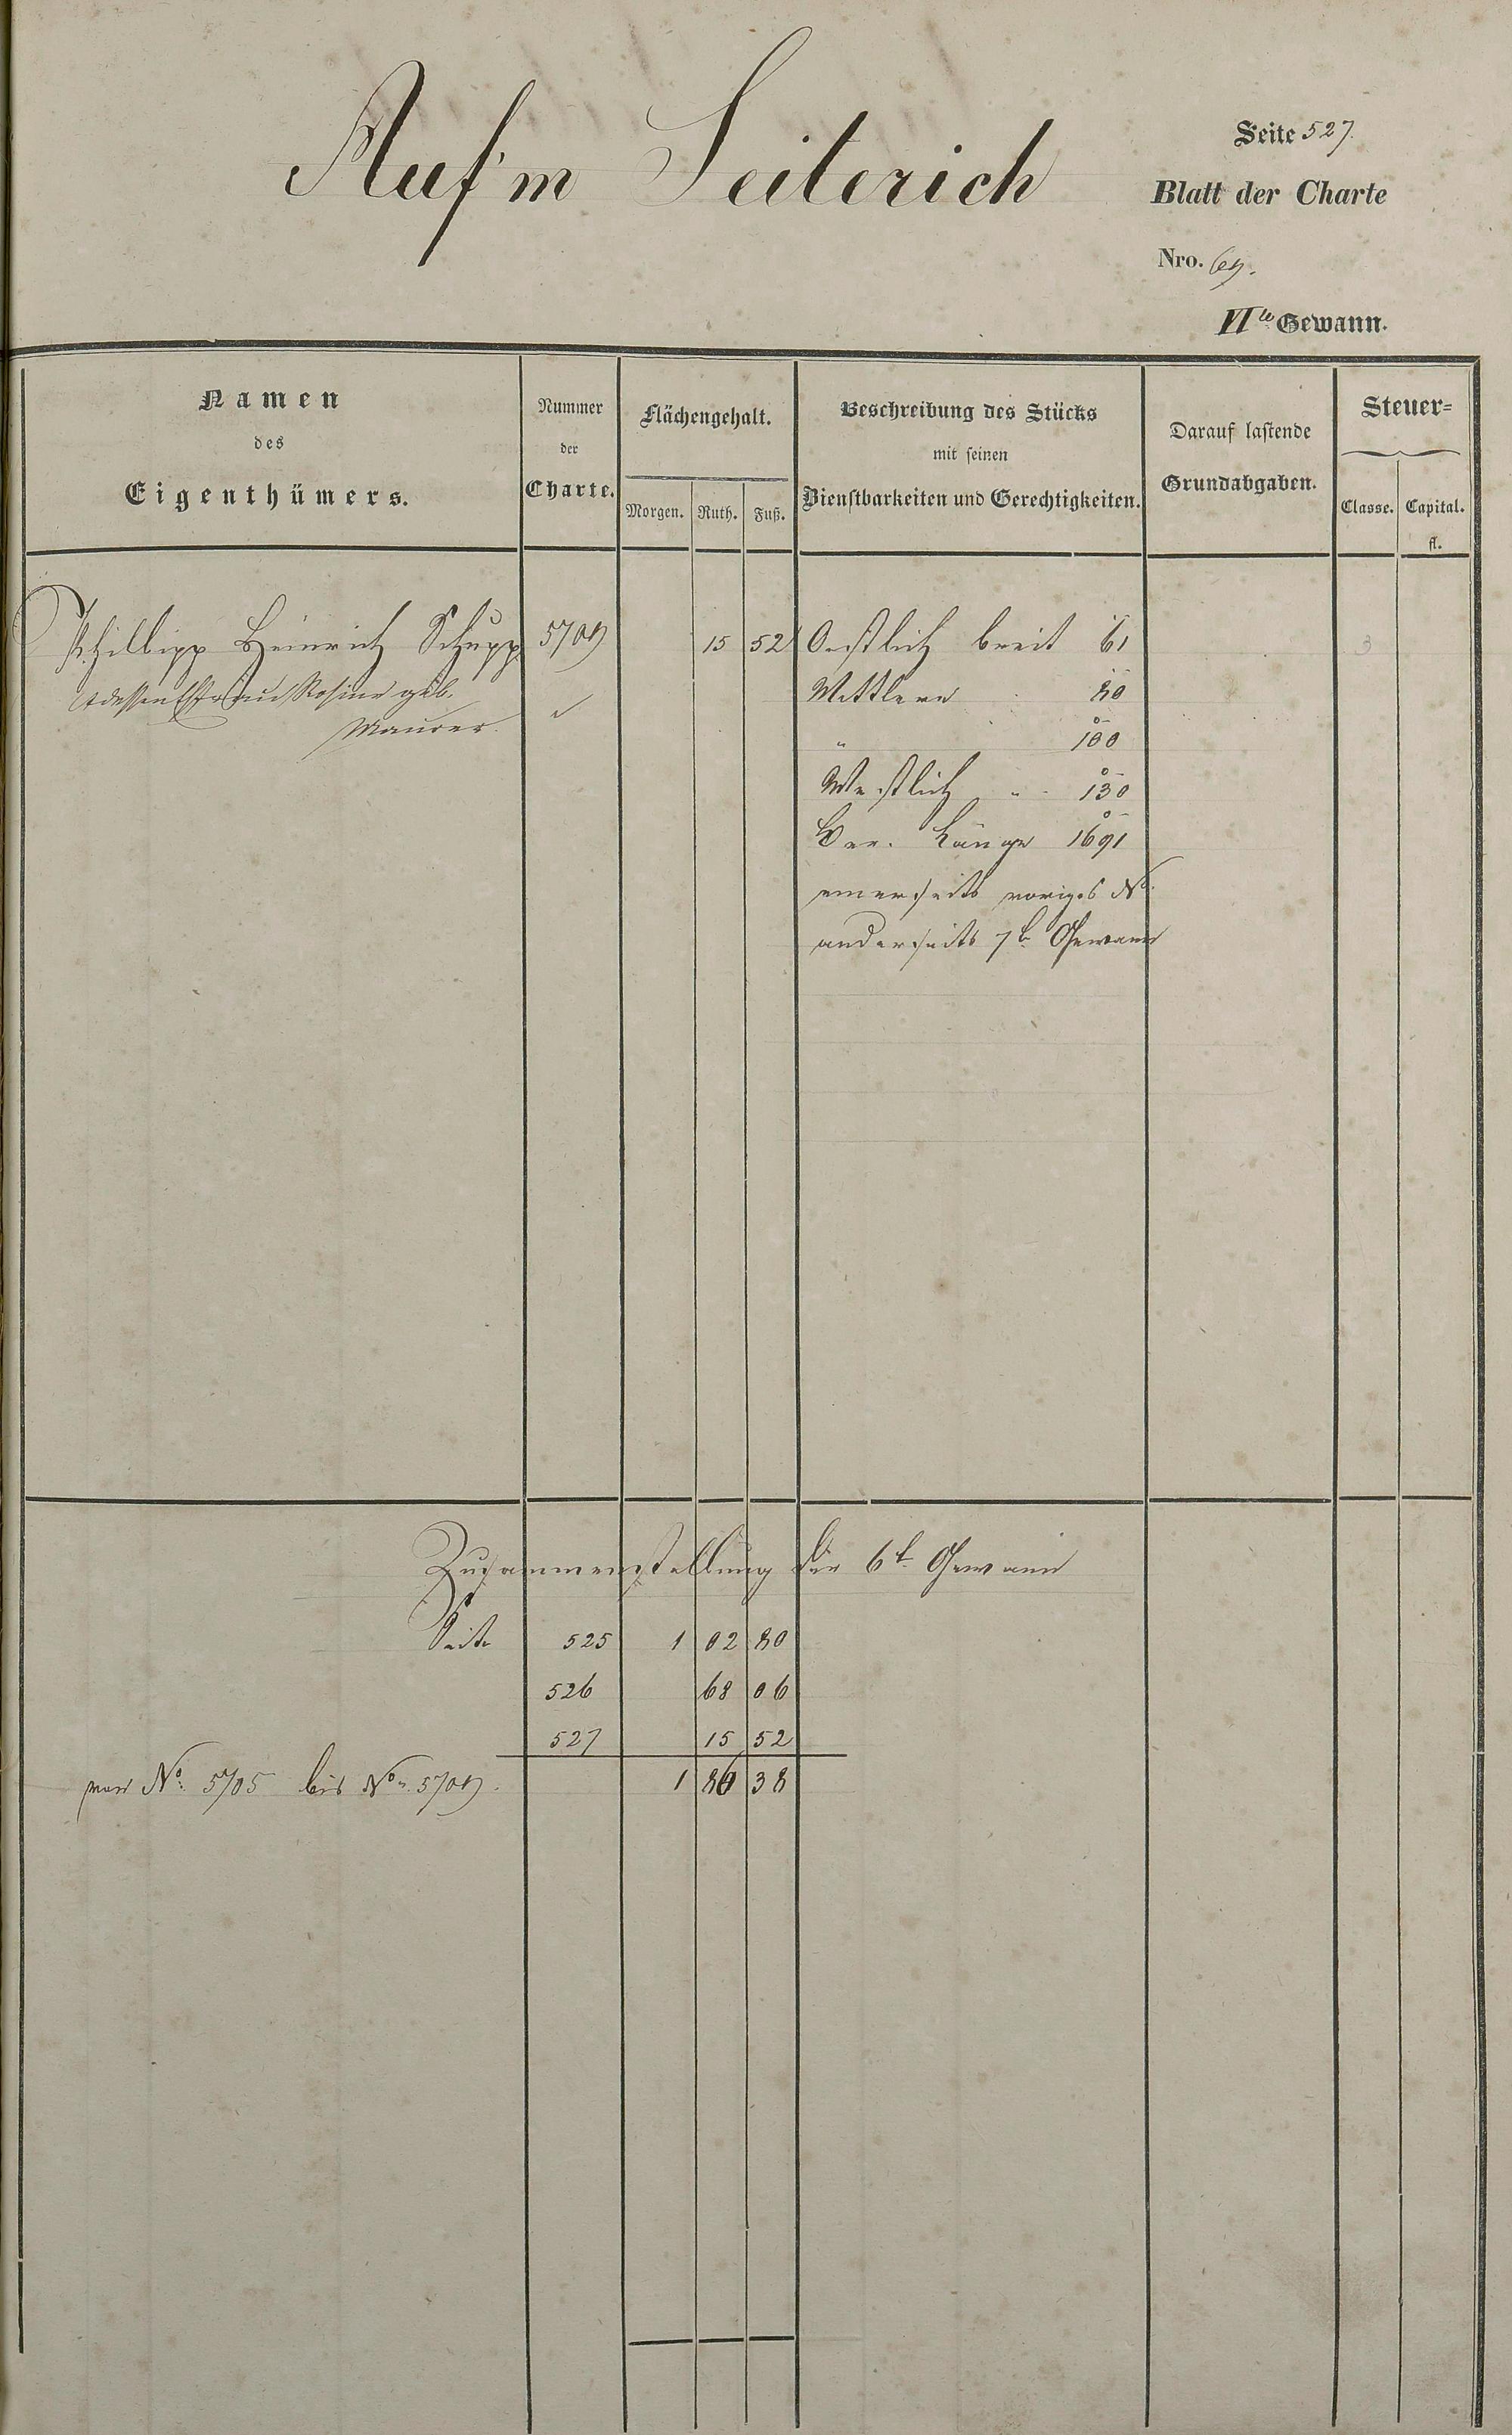 Auf'm Seiterich
Seite 527.
Blatt der Charte
Nro. 69.
VIte Gewann.
Namen
des
Eigenthümers.
Nummer
der
Charte.
Flächengehalt.
Morgen. Ruth. Fuß.
Beschreibung des Stücks
mit seinen
Dienstbarkeiten und Gerechtigkeiten.
Darauf lastende
Grundabgaben.
Steuer=
Classe. Capital.
fl.
Phillipp Heinrich Schupp 5709 15 52 Oestlich breit 61 3
& dessen Ehefrau Rosine geb. Mittlere 80
Maurer.
" 100
Westlich " 130
Ver. Länge 1691
einerseits voriges No.
anderseits 7te Gewann
Zusammenstellung der 6te Gewann
Seite 525 1 02 80
526 68 06
527 15 52
von No. 5705 bis No. 5709. 1 86 38